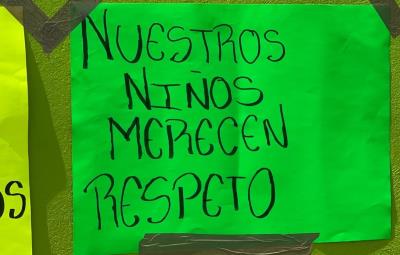 NUESTROS
NIÑOS
MERECEN
RESPETO
OS